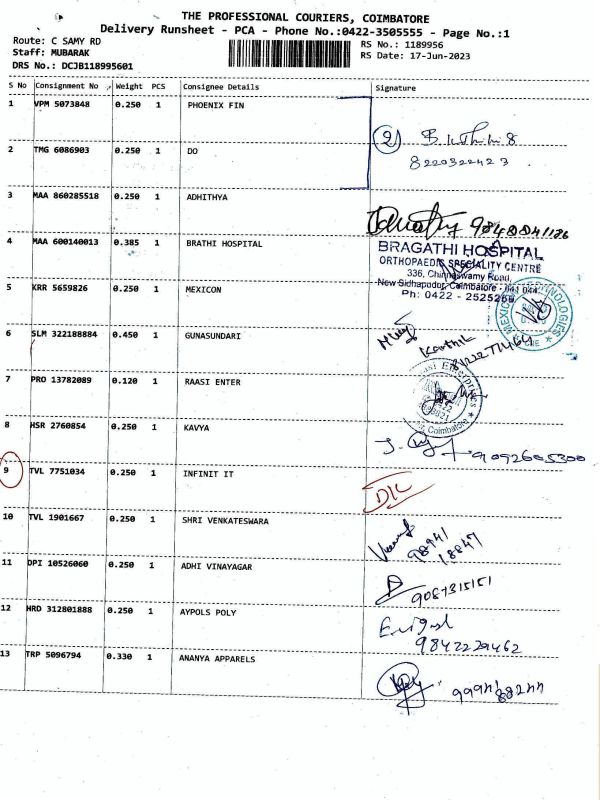 THE PROFESSIONAL COURIERS, COIMBATORE
Delivery Runsheet - PCA - Phone No.:0422-3505555 - Page No.:1
Route: C SAMY RD
Staff: MUBARAK
DRS No.: DCJB118995601
RS No.: 1189956
RS Date: 17-Jun-2023
S No Consignment No Weight PCS Consignee Details Signature
1 VPM 5073848 0.250 1 PHOENIX FIN
2
8220322423
2 TMG 6086903 0.250 1 DO
3 MAA 860285518 0.250 1 ADHITHYA
4 MAA 600140013 0.385 1 BRATHI HOSPITAL
BRAGATHI HOSPITAL
ORTHOPAEDIC SPECIALITY CENTRE
336, Chinnaswamy Road,
New Sidhapudur, Coimbatore - 641 044.
Ph: 0422 - 2525266
5 KRR 5659826 0.250 1 MEXICON
6 SLM 322188884 0.450 1 GUNASUNDARI
Karthik
7 PRO 13782089 0.120 1 RAASI ENTER
8 HSR 2760854 0.250 1 KAVYA
9092605300
9 TVL 7751034 0.250 1 INFINIT IT
D/L
10 TVL 1901667 0.250 1 SHRI VENKATESWARA
98941
18847
11 DPI 10526060 0.250 1 ADHI VINAYAGAR
9087315151
12 HRD 312801888 0.250 1 AYPOLS POLY
9842229462
13 TRP 5096794 0.330 1 ANANYA APPARELS